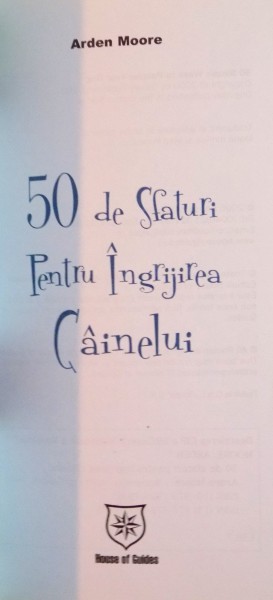 Arden Moore
50 de Sfaturi
Pentru Îngrijirea
Câinelui
House of Guides